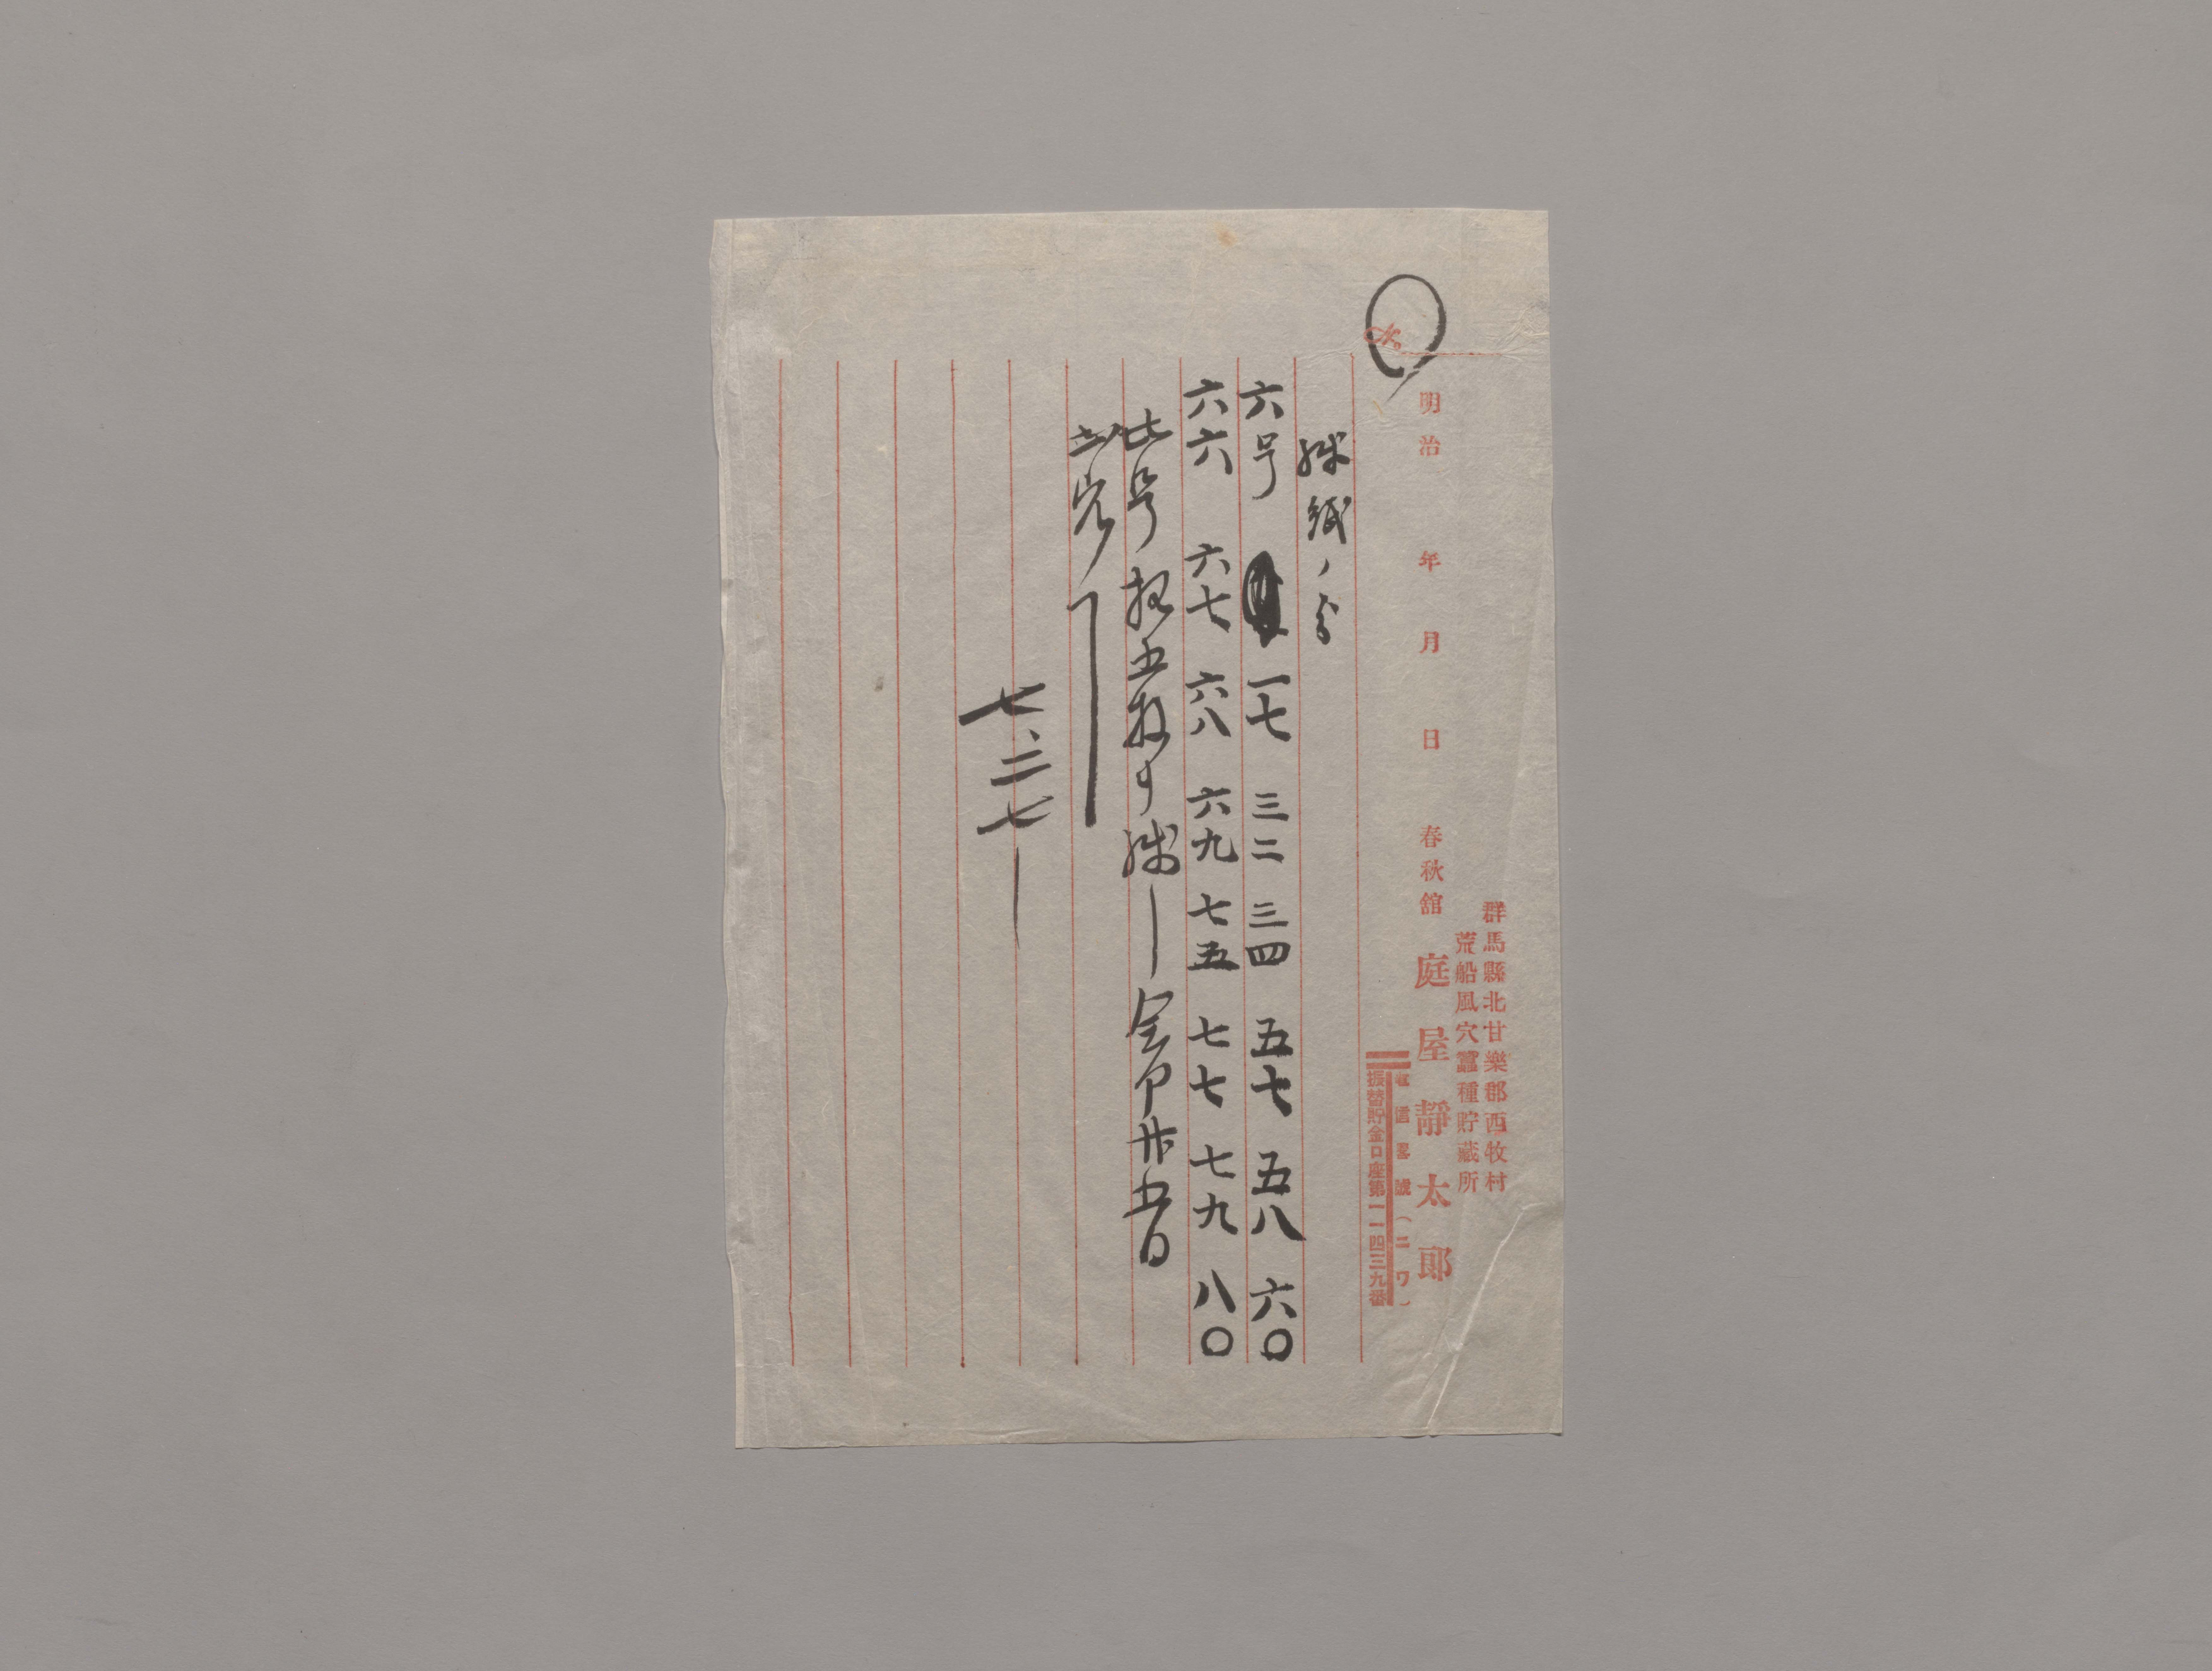 群馬縣北甘樂郡西牧村
荒船風穴蠶種貯藏所
明治 年 月 日 春秋館 庭屋靜太郎
電信畧號(ニワ)
振替貯金口座第一一四三九番
№
残紙ノ分
六号 一七 三二 三四 五七 五八 六〇
六六 六七 六八 六九 七五 七七 七九 八〇
此号 拾五枚 残 廿五日
出穴
七、二七